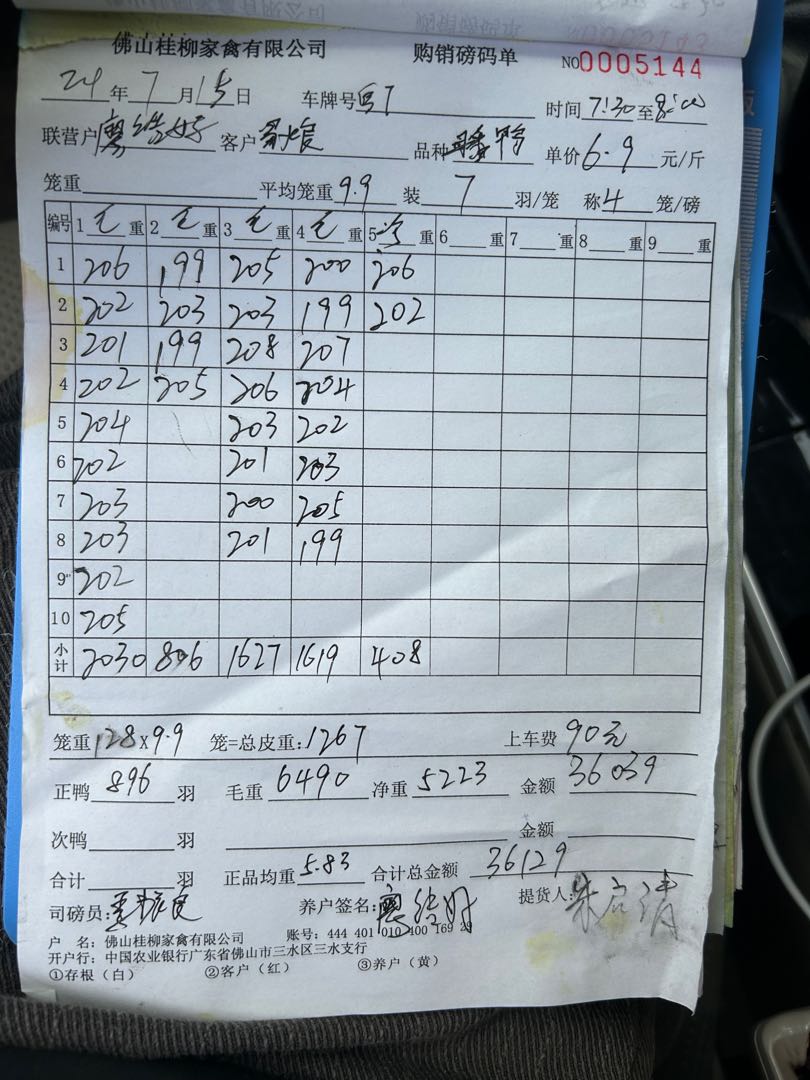 佛山桂柳家禽有限公司 购销磅码单 NO0005144
24年7月15日 车牌号 时间7:30至8:00
联营户 客户 品种 鸭 单价6.9元/斤
笼重 平均笼重9.9 装7羽/笼 称4笼/磅
编号 1毛重 2毛重 3毛重 4毛重 5 重 6 重 7 重 8 重 9 重
1 206 199 205 200 206
2 202 203 203 199 202
3 201 199 208 207
4 202 205 206 204
5 204 203 202
6 202 201 203
7 203 200 205
8 203 201 199
9 202
10 205
小计 2030 806 1627 1619 408
笼重128×9.9 笼=总皮重:1267 上车费90元
正鸭896羽 毛重6490 净重5223 金额36039
次鸭 羽 金额
合计 羽 正品均重5.83 合计总金额36129
司磅员: 养户签名: 提货人:朱启清
户 名:佛山桂柳家禽有限公司 账号:444 401 010 400 169 29
开户行:中国农业银行广东省佛山市三水区三水支行
①存根(白) ②客户(红) ③养户(黄)